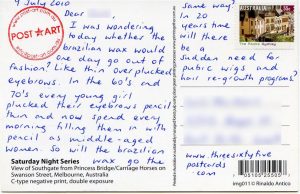 4 July 2010
Dear
I was wondering
today whether the
brazilian wax would
one day go out of
fashion? Like thin over plucked
eyebrows. In the 60's and
70's every young girl
plucked their eyebrows pencil
thin and now spend every
morning filling them in with
pencil as middle-aged
women. So will the brazilian
wax go the
same way?
In 20
years time
will there
be a
sudden need for
pubic wigs and
hair re-growth programs?
POST ART
AUSTRALIA
55c
Saturday Night Series
View of Southgate from Princess Bridge/Carriage Horses on
Swanston Street, Melbourne, Australia
C-type negative print, double exposure
www.threesixtyfive
postcards.
com
img011 © Rinaldo Antico